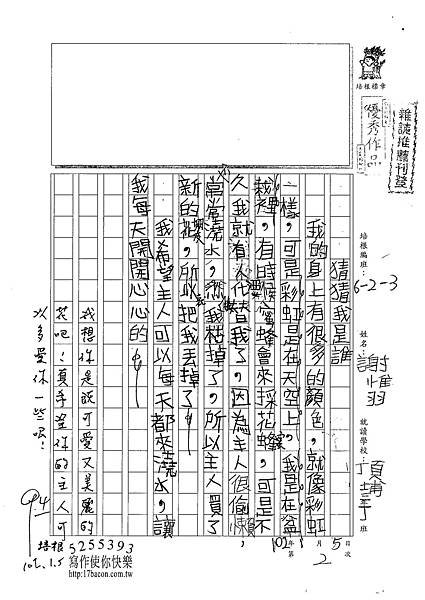 培根標章
優秀作品
雜誌推薦刊登
培根編班：6-2-3
姓名：謝惟羽
就讀學校：頂埔
年
班
102年1月5日
第2次
猜猜我是誰
我的身上有很多的顏色，就像彩虹
一樣，可是彩虹是在天空上，我是在盆
栽裡，有時候蜜蜂會來採花蜜，可是不
久我就沒有花蜜了，因為主人很偷懶
常常澆水，然我枯掉了，所以主人買了
新的花，所以把我丟掉了。
我希望主人可以每天都來澆水，讓
我每天開開心心的。
我想你是既可愛又美麗的
花吧！真希望你的主人可
以多愛你一些喔！
94
102.1.5
培根 5255393
寫作使你快樂
http://www.17bacon.com.tw